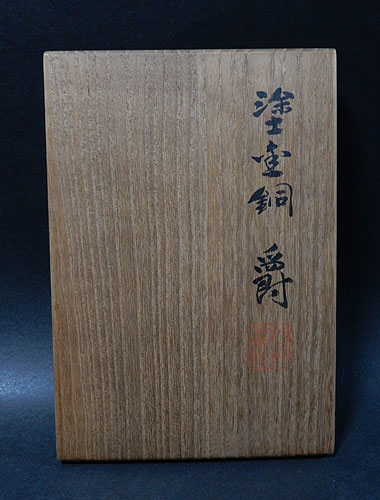 塗金銅 爵